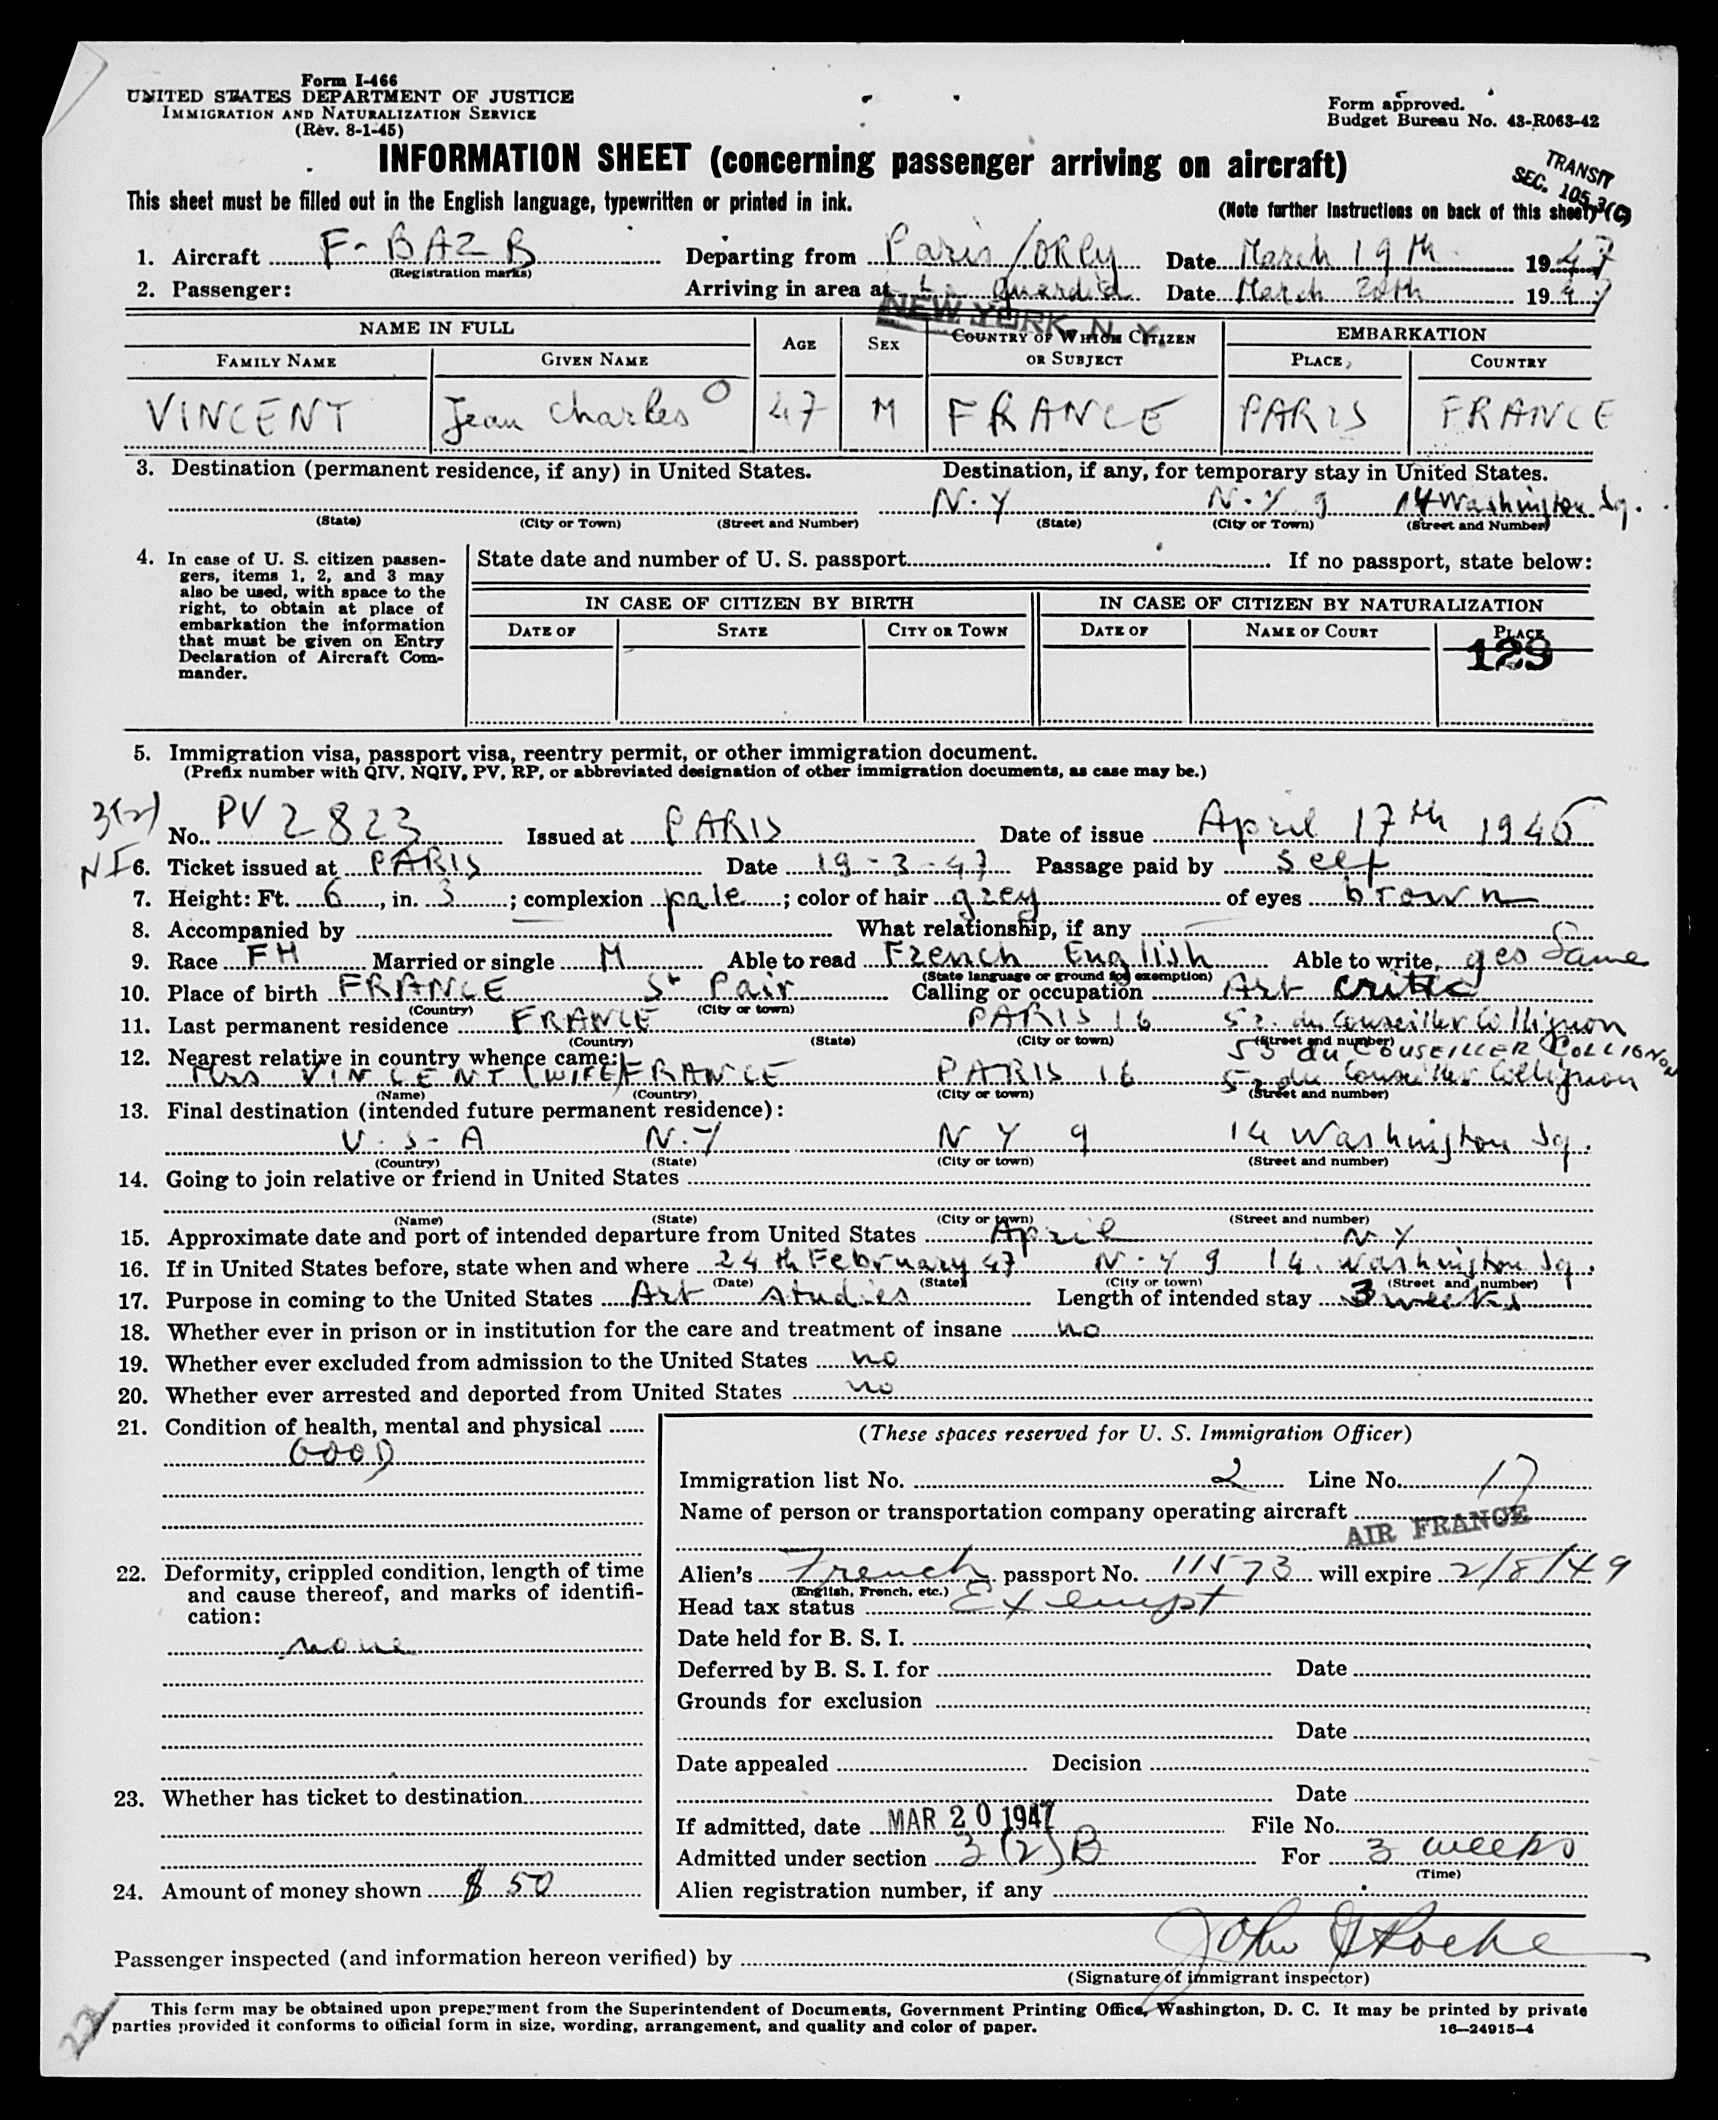 Form I-466
UNITED STATES DEPARTMENT OF JUSTICE
IMMIGRATION AND NATURALIZATION SERVICE
(Rev. 8-1-45)
Form approved.
Budget Bureau No. 43-R063-42
INFORMATION SHEET (concerning passenger arriving on aircraft)
TRANSIT
SEC. 105.3(C)
This sheet must be filled out in the English language, typewritten or printed in ink.
(Note further instructions on back of this sheet)
1. Aircraft F-BAZB Departing from Paris/ORLY Date March 19th 1947
(Registration marks)
2. Passenger: Arriving in area at La Guardia Date March 20th 1947
NEW YORK, N. Y.
NAME IN FULL AGE SEX COUNTRY OF WHICH CITIZEN OR SUBJECT EMBARKATION
FAMILY NAME GIVEN NAME PLACE COUNTRY
VINCENT Jean Charles O 47 M FRANCE PARIS FRANCE
3. Destination (permanent residence, if any) in United States. Destination, if any, for temporary stay in United States.
N.Y N.Y. 9 14 Washington Sq.
(State) (City or Town) (Street and Number) (State) (City or Town) (Street and Number)
4. In case of U. S. citizen passen-
gers, items 1, 2, and 3 may
also be used, with space to the
right, to obtain at place of
embarkation the information
that must be given on Entry
Declaration of Aircraft Com-
mander.
State date and number of U. S. passport If no passport, state below:
IN CASE OF CITIZEN BY BIRTH IN CASE OF CITIZEN BY NATURALIZATION
DATE OF STATE CITY OR TOWN DATE OF NAME OF COURT PLACE
129
5. Immigration visa, passport visa, reentry permit, or other immigration document.
(Prefix number with QIV, NQIV, PV, RP, or abbreviated designation of other immigration documents, as case may be.)
3(2) No. PV 2823 Issued at PARIS Date of issue April 17th 1946
NI 6. Ticket issued at PARIS Date 19-3-47 Passage paid by self
7. Height: Ft. 6, in. 3; complexion pale; color of hair grey of eyes brown
8. Accompanied by What relationship, if any
9. Race FH Married or single M Able to read French English Able to write, yes Same
(State language or ground for exemption)
10. Place of birth FRANCE St Pair Calling or occupation Art critic
(Country) (City or town)
11. Last permanent residence FRANCE PARIS 16 52. du Conseiller Collignon
(Country) (State) (City or town) (Street and number)
12. Nearest relative in country whence came: 53 du CONSEILLER COLLIGNON
Mrs VINCENT (WIFE) FRANCE PARIS 16 52 du Conseiller Collignon
(Name) (Country) (City or town) (Street and number)
13. Final destination (intended future permanent residence):
U.S.A N.Y NY 9 14 Washington Sq.
(Country) (State) (City or town) (Street and number)
14. Going to join relative or friend in United States
(Name) (State) (City or town) (Street and number)
15. Approximate date and port of intended departure from United States April NY
16. If in United States before, state when and where 24th February 47 N.Y 9 14. Washington Sq.
(Date) (State) (City or town) (Street and number)
17. Purpose in coming to the United States Art studies Length of intended stay 3 weeks
18. Whether ever in prison or in institution for the care and treatment of insane no
19. Whether ever excluded from admission to the United States no
20. Whether ever arrested and deported from United States no
21. Condition of health, mental and physical
GOOD
22. Deformity, crippled condition, length of time
and cause thereof, and marks of identifi-
cation:
none
23. Whether has ticket to destination
24. Amount of money shown $ 50
(These spaces reserved for U. S. Immigration Officer)
Immigration list No. 2 Line No. 17
Name of person or transportation company operating aircraft
AIR FRANCE
Alien's French passport No. 11573 will expire 2/8/49
(English, French, etc.)
Head tax status Exempt
Date held for B. S. I.
Deferred by B. S. I. for Date
Grounds for exclusion
Date
Date appealed Decision
Date
If admitted, date MAR 20 1947 File No.
Admitted under section 3(2)B For 3 weeks
(Time)
Alien registration number, if any
Passenger inspected (and information hereon verified) by John Roche
(Signature of immigrant inspector)
This form may be obtained upon prepayment from the Superintendent of Documents, Government Printing Office, Washington, D. C. It may be printed by private
parties provided it conforms to official form in size, wording, arrangement, and quality and color of paper.
16—24915-4